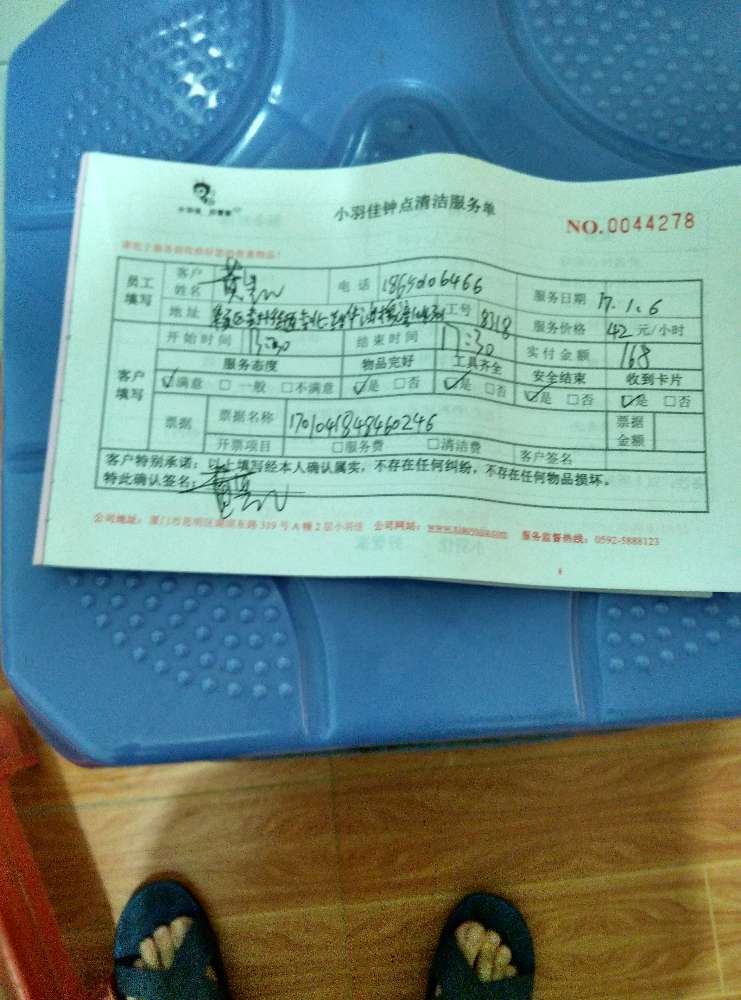 小羽佳 好管家
小羽佳钟点清洁服务单
NO.0044278
员工填写 客户姓名 黄 电话 服务日期 17.1.6
地址 工号 8318 服务价格 42 元/小时
客户填写 开始时间 13:30 结束时间 17:30 实付金额 168
服务态度 物品完好 工具齐全 安全结束 收到卡片
☑满意 □一般 □不满意 ☑是 □否 ☑是 □否 ☑是 □否 ☑是 □否
票据 票据名称 1701041848460246 票据金额
开票项目 □服务费 □清洁费 客户签名
客户特别承诺:以上填写经本人确认属实,不存在任何纠纷,不存在任何物品损坏。
特此确认签名: 黄
公司地址:厦门市思明区湖滨东路 319 号 A 幢 2 层小羽佳 公司网站: 服务监督热线:0592-5888123